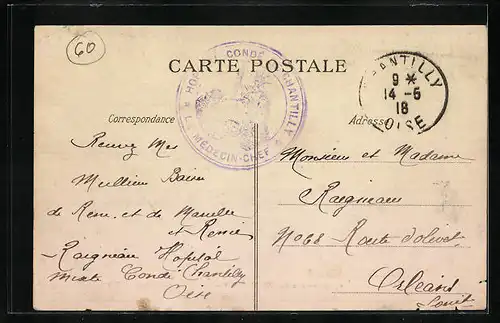 60
CARTE POSTALE
HOPITAL CONDÉ CHANTILLY
LE MÉDECIN-CHEF
CHANTILLY
9 *
14 - 5
18
OISE
Correspondance
Adresse
Recevez Mes
Meilleur Baiser
de Rene. et de
et Renée
Raigneau Hopital
Mixte Condé Chantilly
Oise
Monsieur et Madame
Raigneau
No 68 Route d'olivet
Orléans
Loiret